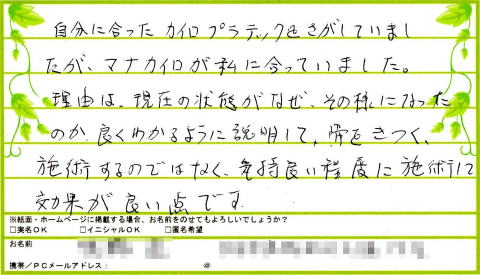 自分に合ったカイロプラテックをさがしていまし
たが、マナカイロが私に合っていました。
理由は、現在の状態がなぜ、その様になった
のか良くわかるように説明して、骨をきつく、
施術するのではなく、気持良い程度に施術して
効果が良い点です
※紙面・ホームページに掲載する場合、お名前をのせてもよろしいでしょうか?
□実名OK □イニシャルOK □匿名希望
お名前
携帯/PCメールアドレス: @